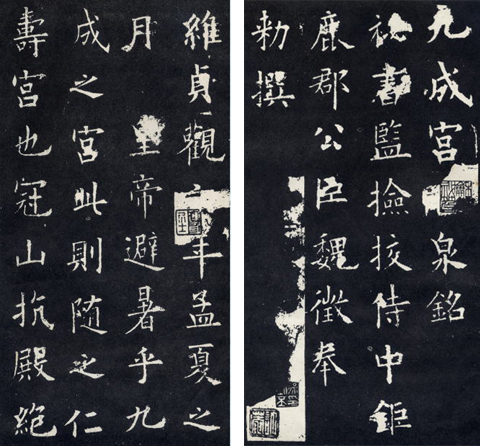 九成宮泉銘
秘書監撿挍侍中鉅
鹿郡公臣魏徵奉
勅撰
維貞觀年孟夏之
月皇帝避暑乎九
成之宮此則隨之仁
壽宮也冠山抗殿絶